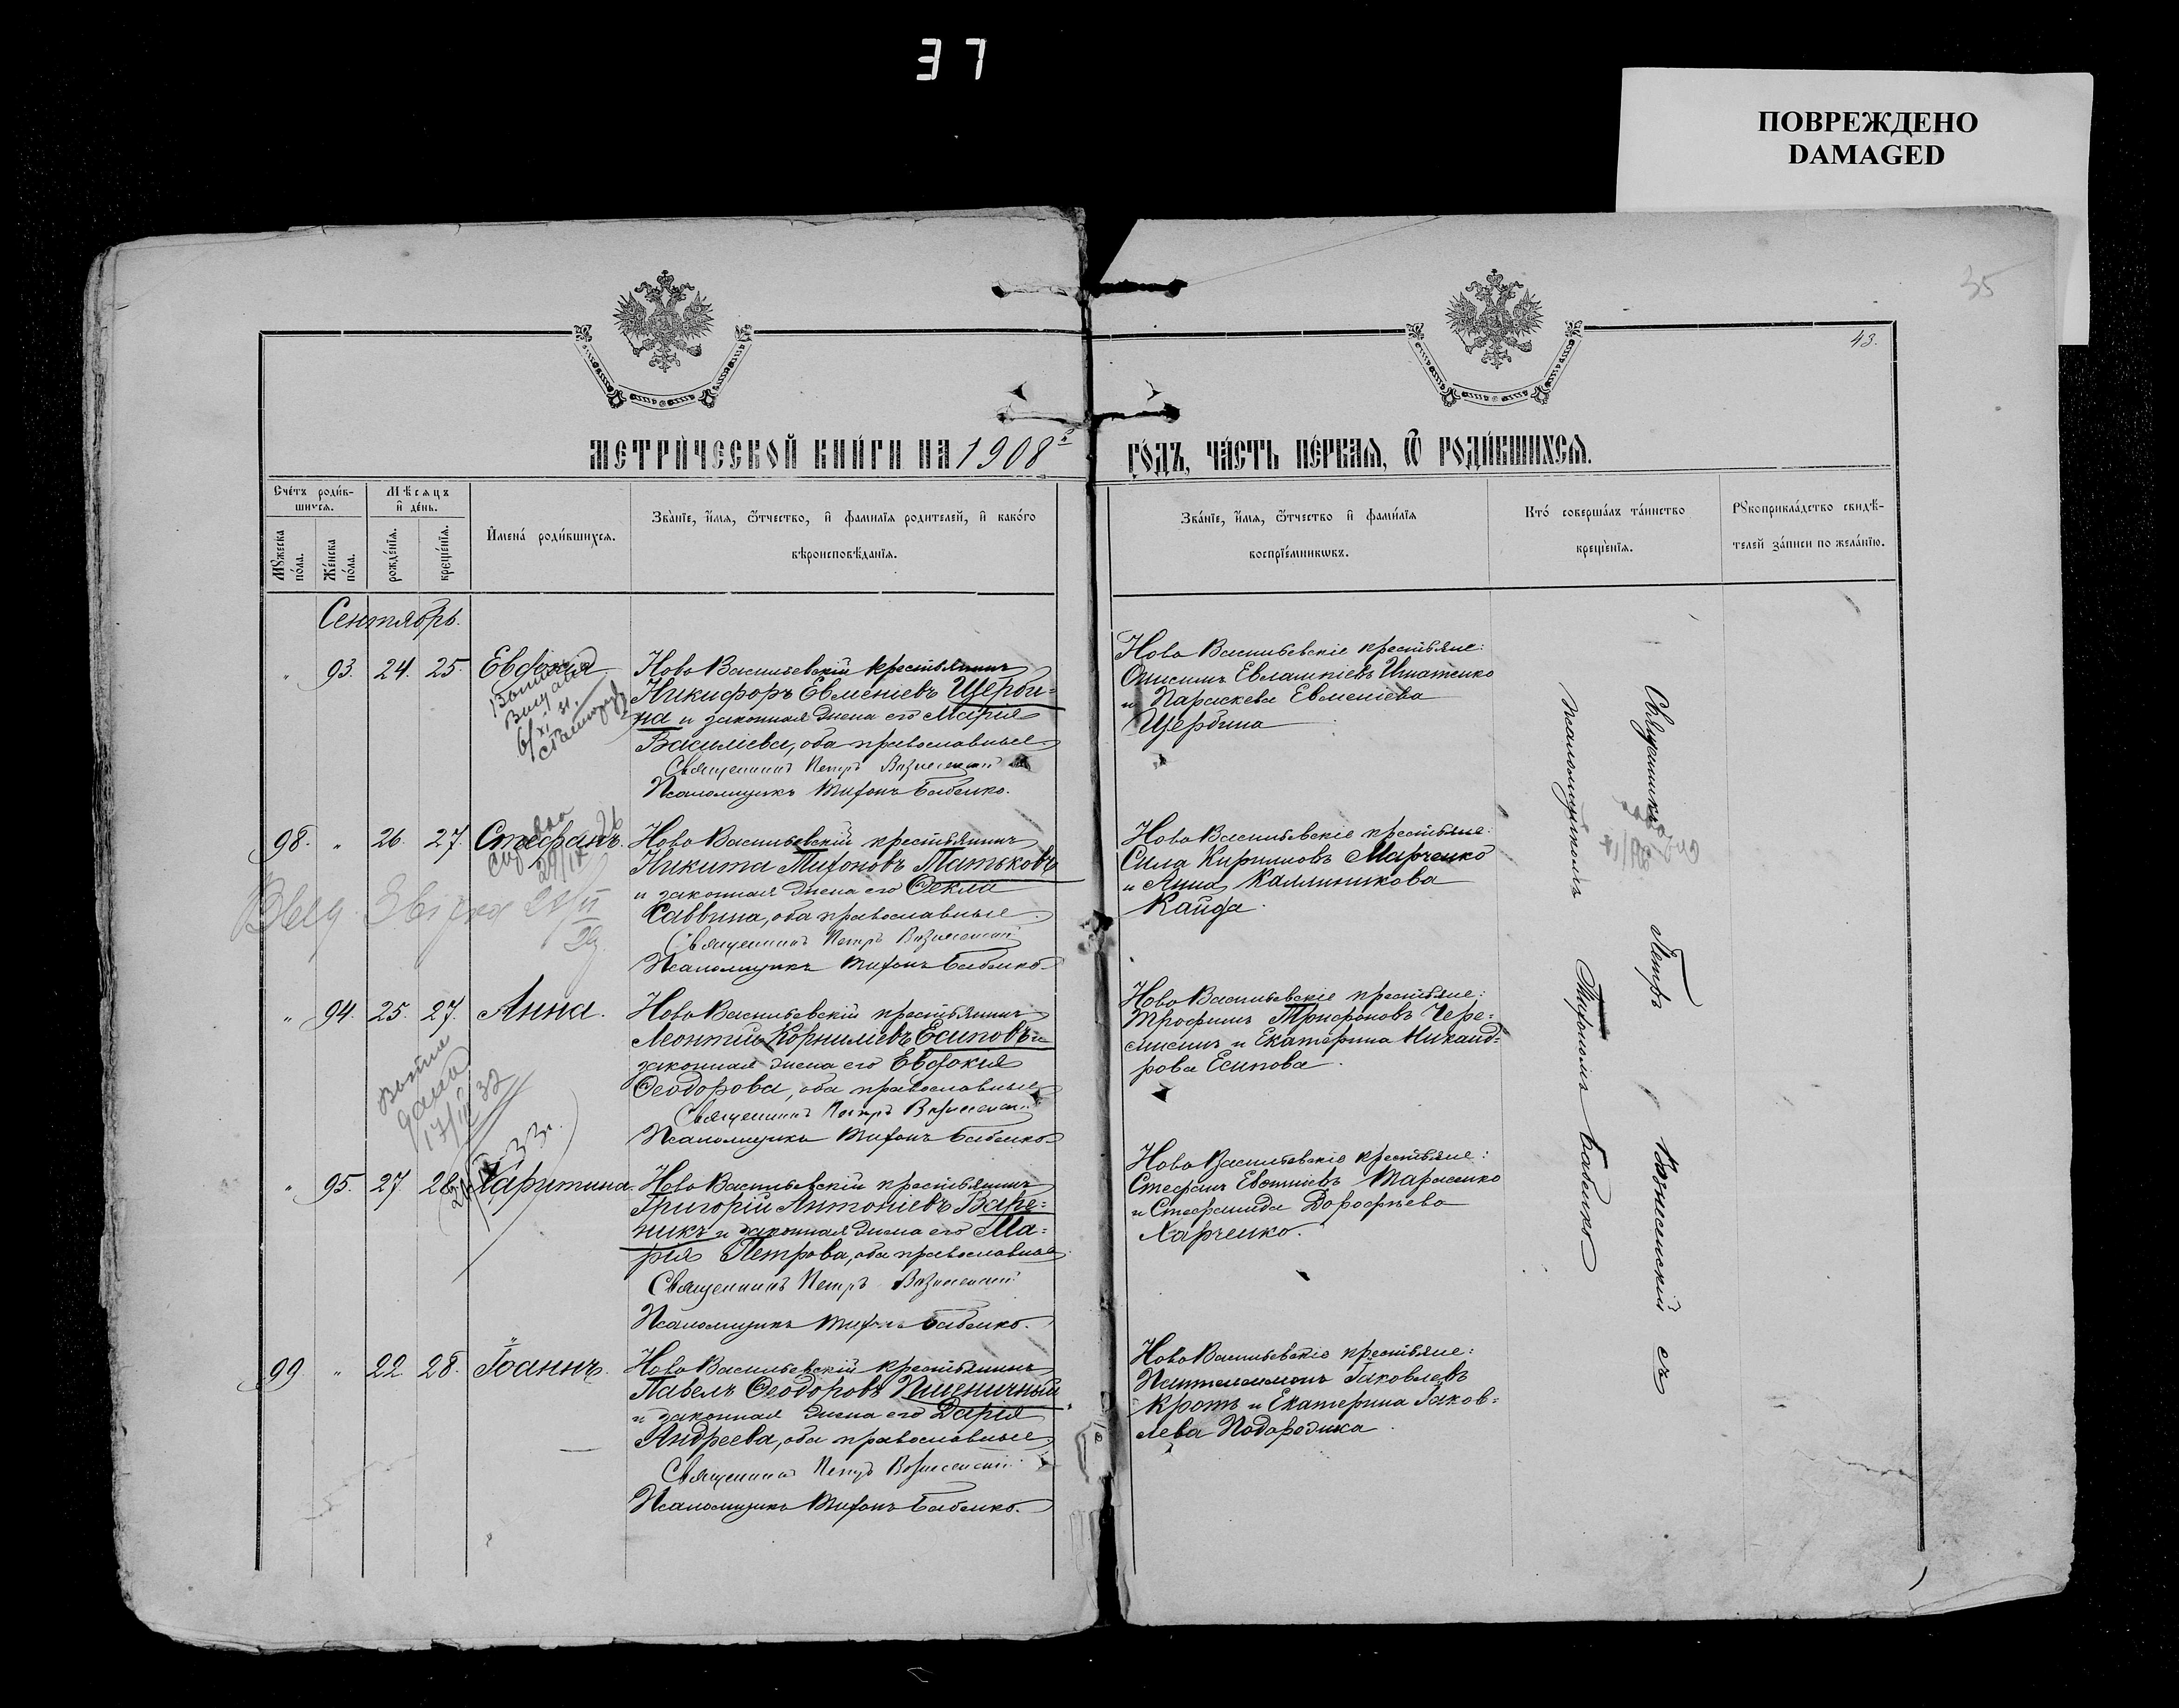 37
ПОВРЕЖДЕНО
DAMAGED
35
43.
МЕТРИ́ЧЕСКОЙ КНИ́ГИ НА 1908 й
ГО́ДЪ, ЧА́СТЬ ПЕ́РВАЯ, Ѿ РОДИ́ВШИХСЯ.
Сче́тъ роди́в-
шихся.
Мѣсяцъ
и де́нь.
Мꙋ́жеска
по́ла.
Же́нска
по́ла.
рожде́нїя.
креще́нїя.
Имена́ роди́вшихся.
Зва́нїе, и́мя, ѿтчество, и фами́лїя роди́телей, и како́го
вѣроисповѣ́данїя.
Зва́нїе, и́мя, ѿтчество и фами́лїя
воспрїе́мникѡвъ.
Кто́ соверша́лъ та́инство
креще́нїя.
Рꙋкоприкла́дство свидѣ́-
телей за́писи по жела́нїю.
Сентябрь.
" 93. 24. 25. Евдокія
6/XI 31.
Ново Васильевскій крестьянинъ
Никифоръ Евменіевъ Щерби=
на и законная жена его Марія
Василіева, оба православные.
Священникъ Петръ Вознесенскій
Псаломщикъ Тихонъ Бабенко.
Ново Васильевскіе крестьяне:
Онисимъ Евлампіевъ Игнатенко
и Параскева Евменіева
Щербина
98. " 26. 27. Стефанъ.
29/IX 26
Ново Васильевскій крестьянинъ
Никита Тихоновъ Матьковъ
и законная жена его Ѳекла
Саввина, оба православные.
Священникъ Петръ Вознесенскій
Псаломщикъ Тихонъ Бабенко.
Ново Васильевскіе крестьяне:
Сила Кирилловъ Марченко
и Анна Каллиникова
Кайда.
" 94. 25. 27. Анна.
17/III 32
Ново Васильевскій крестьянинъ
Леонтій Корниліевъ Есиповъ и
законная жена его Евдокія
Ѳеодорова, оба православные
Священникъ Петръ Вознесенскій
Псаломщикъ Тихонъ Бабенко.
Ново Васильевскіе крестьяне:
Трофимъ Трифоновъ Чере=
мисинъ и Екатерина Никанд=
рова Есипова.
" 95. 27. 28. Харитина.
Ново Васильевскій крестьянинъ
Григорій Антоніевъ Варе=
никъ и законная жена его Ма=
рія Петрова, оба православные.
Священникъ Петръ Вознесенскій
Псаломщикъ Тихонъ Бабенко.
Ново Васильевскіе крестьяне:
Стефанъ Евѳиміевъ Тарасенко
и Стефанида Дороѳеева
Харченко.
99 " 22. 28. Іоаннъ.
Ново Васильевскій крестьянинъ
Павелъ Ѳеодоровъ Пшеничный
и законная жена его Дарія
Андреева, оба православные.
Священникъ Петръ Вознесенскій
Псаломщикъ Тихонъ Бабенко.
Ново Васильевскіе крестьяне:
Пантелеимонъ Іаковлевъ
Кротъ и Екатерина Іаков=
лева
Священникъ Петръ Вознесенскій съ
псаломщикомъ Тихономъ Бабенко